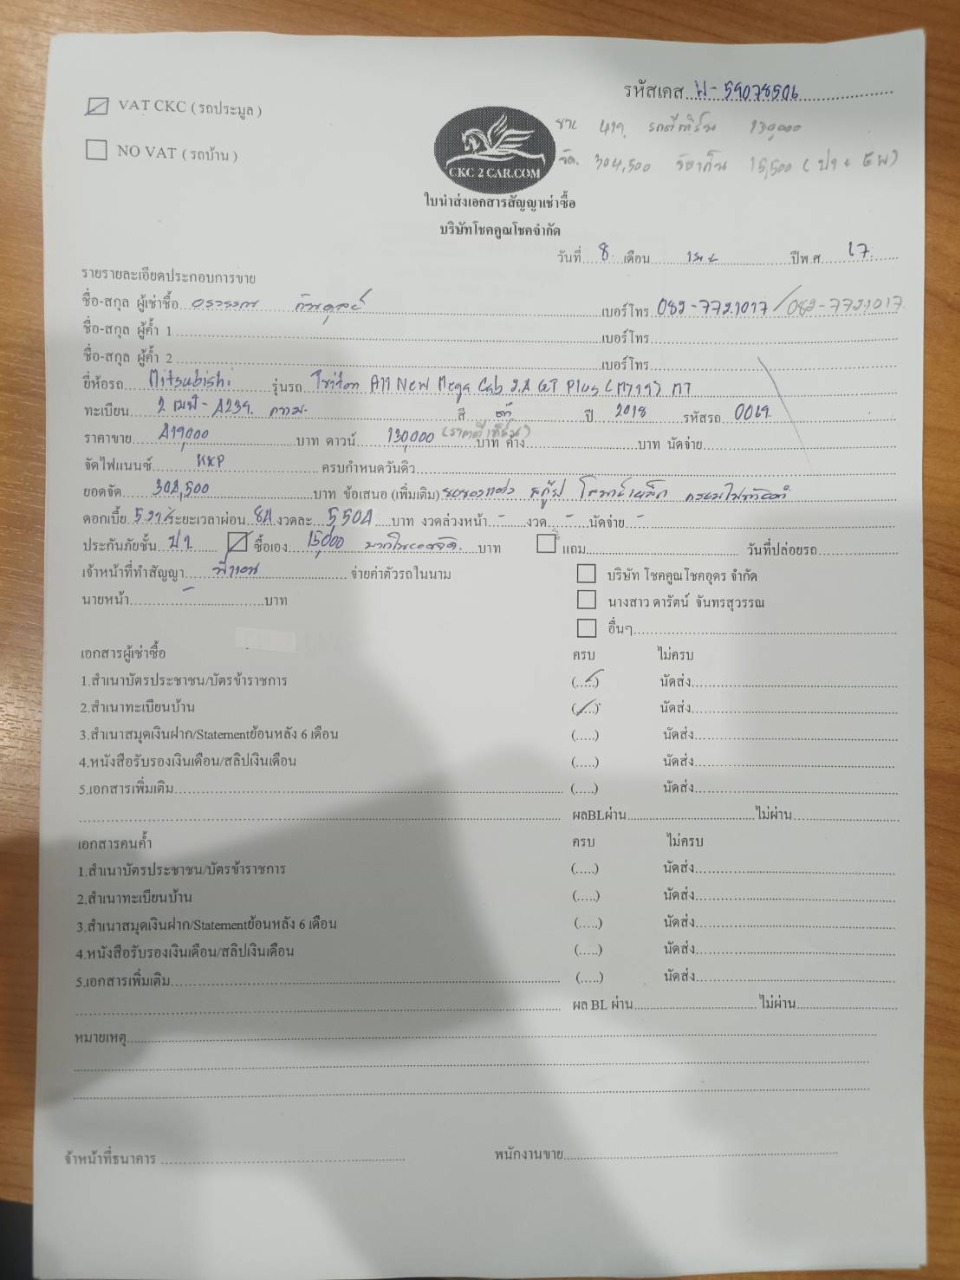 รหัสเคส พ-59078506
VAT CKC ( รถประมูล )
ขาย 419, รถตีเทิร์น 130,000
NO VAT ( รถบ้าน )
จัด. 304,500 15,500
CKC 2 CAR.COM
ใบนำส่งเอกสารสัญญาเช่าซื้อ
บริษัทโชคคูณโชคจำกัด
วันที่ 8 เดือน ปีพ.ศ. 67
รายรายละเอียดประกอบการขาย
ชื่อ-สกุล ผู้เช่าซื้อ เบอร์โทร 082-7721017 / 082-7721017
ชื่อ-สกุล ผู้ค้ำ 1 เบอร์โทร
ชื่อ-สกุล ผู้ค้ำ 2 เบอร์โทร
ยี่ห้อรถ Mitsubishi รุ่นรถ ไทรทัน All New Mega Cab 2.4 GT Plus MT
ทะเบียน 2 กทม. สี ดำ ปี 2018 รหัสรถ
ราคาขาย 419,000 บาท ดาวน์ 130,000 (รถตีเทิร์น) บาท ค้าง บาท นัดจ่าย
จัดไฟแนนซ์ KKP ครบกำหนดวันดิว
ยอดจัด 304,500 บาท ข้อเสนอ (เพิ่มเติม)
ดอกเบี้ย ระยะเวลาผ่อน 84 งวดละ 5504 บาท งวดล่วงหน้า - งวด - นัดจ่าย -
ประกันภัยชั้น ป1 ซื้อเอง 15,000 บาท แถม วันที่ปล่อยรถ
เจ้าหน้าที่ทำสัญญา จ่ายค่าตัวรถในนาม บริษัท โชคคูณโชคอุดร จำกัด
นายหน้า - บาท นางสาว ดารัตน์ จันทรสุวรรณ
อื่นๆ
เอกสารผู้เช่าซื้อ ครบ ไม่ครบ
1.สำเนาบัตรประชาชน/บัตรข้าราชการ (.....) นัดส่ง
2.สำเนาทะเบียนบ้าน (.....) นัดส่ง
3.สำเนาสมุดเงินฝาก/Statementย้อนหลัง 6 เดือน (.....) นัดส่ง
4.หนังสือรับรองเงินเดือน/สลิปเงินเดือน (.....) นัดส่ง
5.เอกสารเพิ่มเติม (.....) นัดส่ง
ผลBLผ่าน ไม่ผ่าน
เอกสารคนค้ำ ครบ ไม่ครบ
1.สำเนาบัตรประชาชน/บัตรข้าราชการ (.....) นัดส่ง
2.สำเนาทะเบียนบ้าน (.....) นัดส่ง
3.สำเนาสมุดเงินฝาก/Statementย้อนหลัง 6 เดือน (.....) นัดส่ง
4.หนังสือรับรองเงินเดือน/สลิปเงินเดือน (.....) นัดส่ง
5.เอกสารเพิ่มเติม (.....) นัดส่ง
ผล BL ผ่าน ไม่ผ่าน
หมายเหตุ
จ้าหน้าที่ธนาคาร พนักงานขาย